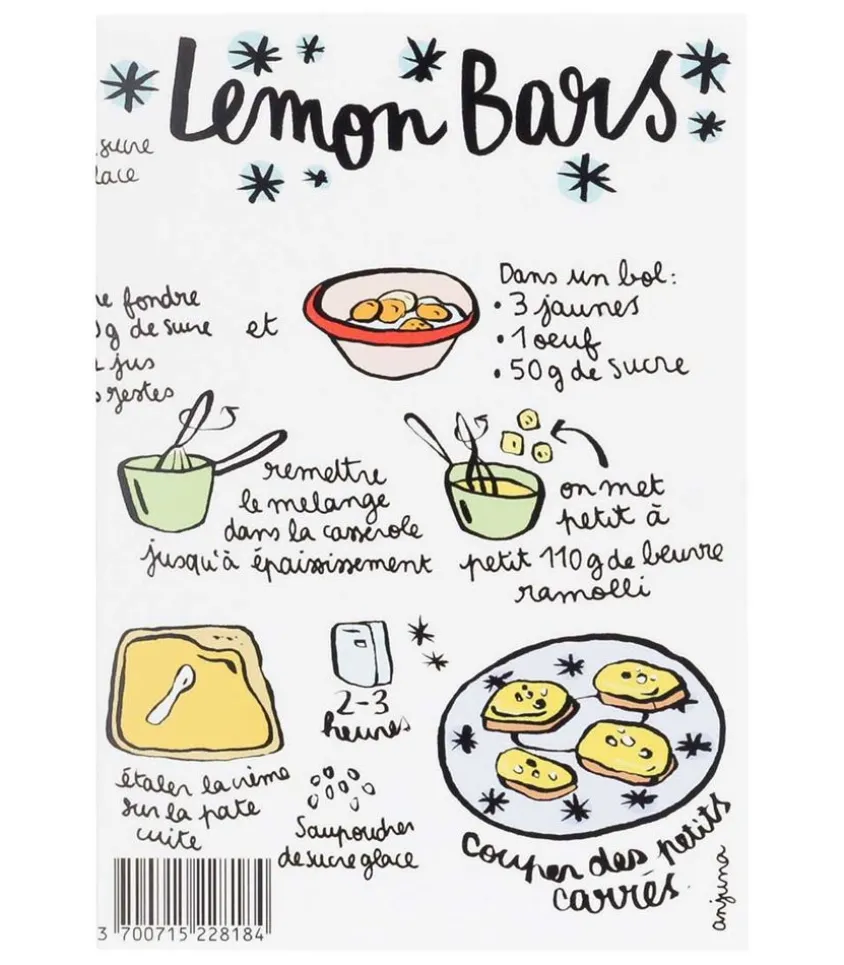 Lemon Bars
sucre
lace
fondre
g de sucre et
jus
restes
Dans un bol:
• 3 jaunes
• 1 oeuf
• 50g de sucre
remettre
le melange
dans la casserole
jusqu'à épaississement
on met
petit à
petit 110g de beurre
ramolli
2-3
heures
étaler la crème
sur la pate
cuite
Saupoudrer
de sucre glace
couper des petits
carrés
anjuna
3 700715 228184